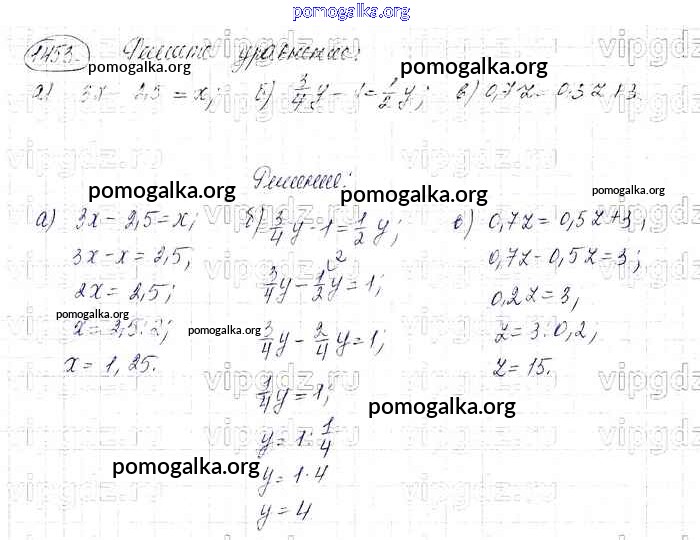 pomogalka.org
1453. Решите уравнение:
pomogalka.org pomogalka.org
а) 3x - 2,5 = x; б) 3/4 y - 1 = 1/2 y; в) 0,7z = 0,5z + 3.
Решение:
pomogalka.org pomogalka.org pomogalka.org
а) 3x - 2,5 = x; б) 3/4 y - 1 = 1/2 y; в) 0,7z = 0,5z + 3;
3x - x = 2,5; 3/4 y - 1/2 y = 1; 0,7z - 0,5z = 3;
2 
2x = 2,5; 0,2z = 3,
pomogalka.org pomogalka.org
x = 2,5 : 2; 3/4 y - 2/4 y = 1; z = 3 : 0,2,
x = 1,25. z = 15.
vipgdz.ru
1/4 y = 1;
pomogalka.org
y = 1 : 1/4
pomogalka.org
y = 1 · 4
y = 4